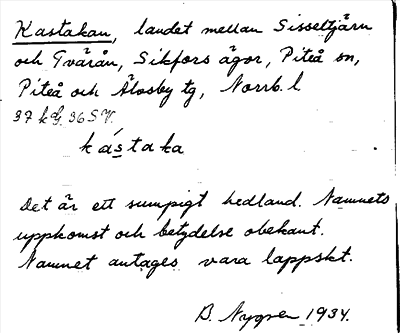 Kastakan, landet mellan Sisseltjärn
och Tvärån, Sikfors ägor, Piteå sn,
Piteå och Älvsby tg, Norrb. l
37 kG. 36 SV.
kástaka
Det är ett sumpigt hedland. Namnets
uppkomst och betydelse obekant.
Namnet antages vara lappskt.
B. Nygren 1934.